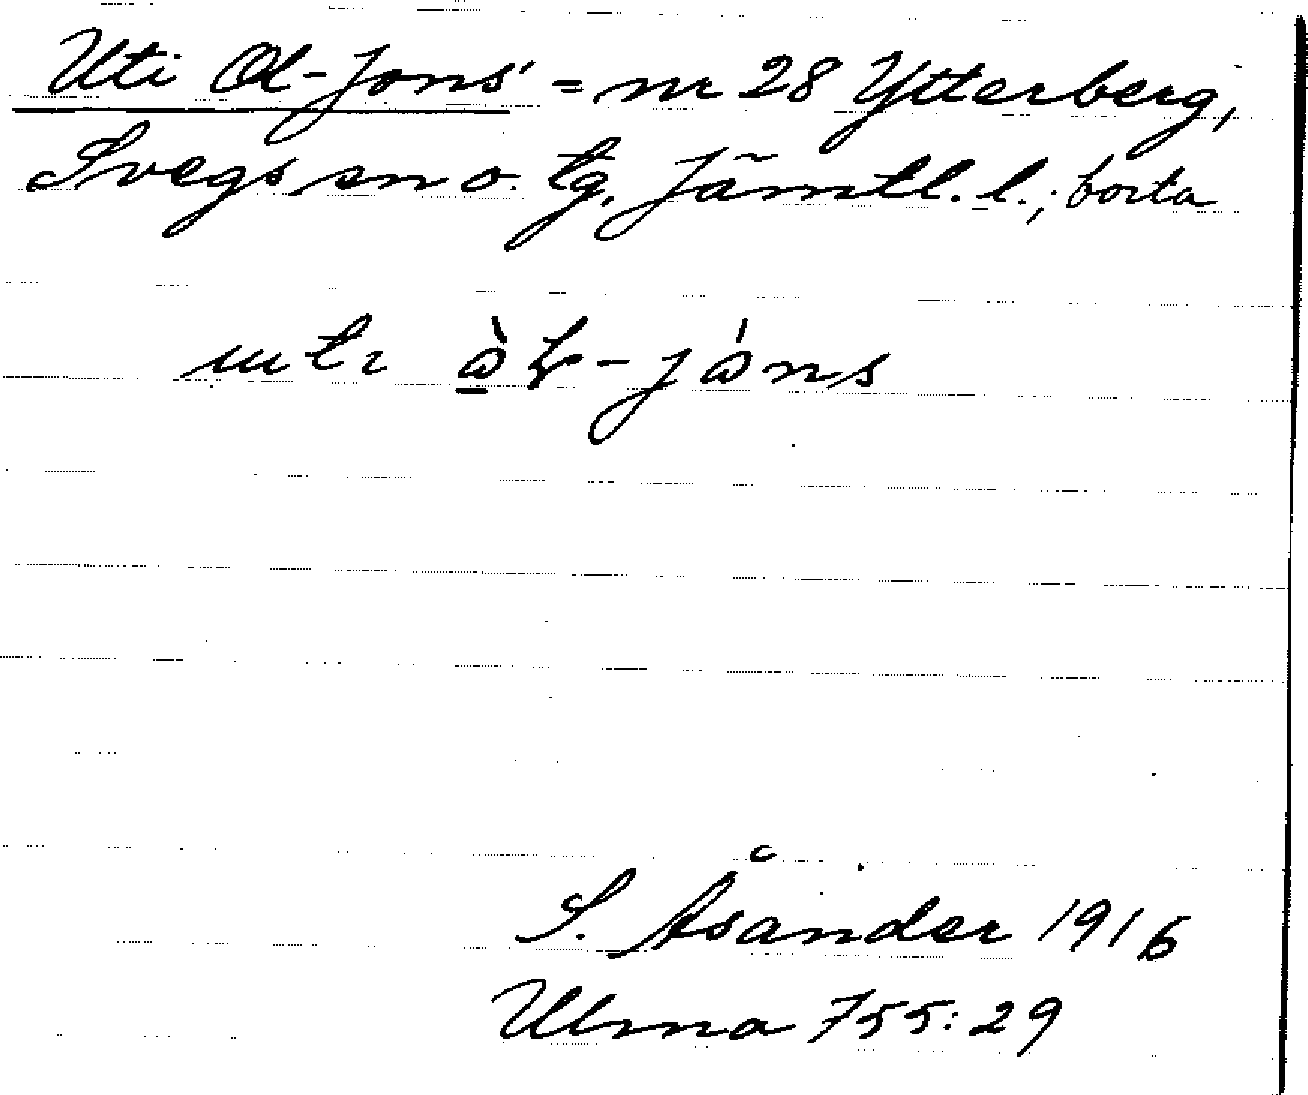 Uti Ol-Jons' = nr 28 Ytterberg,
Svegs sn o. tg, Jämtl. l.; borta
S. Åsander 1916
Ulma 755:29